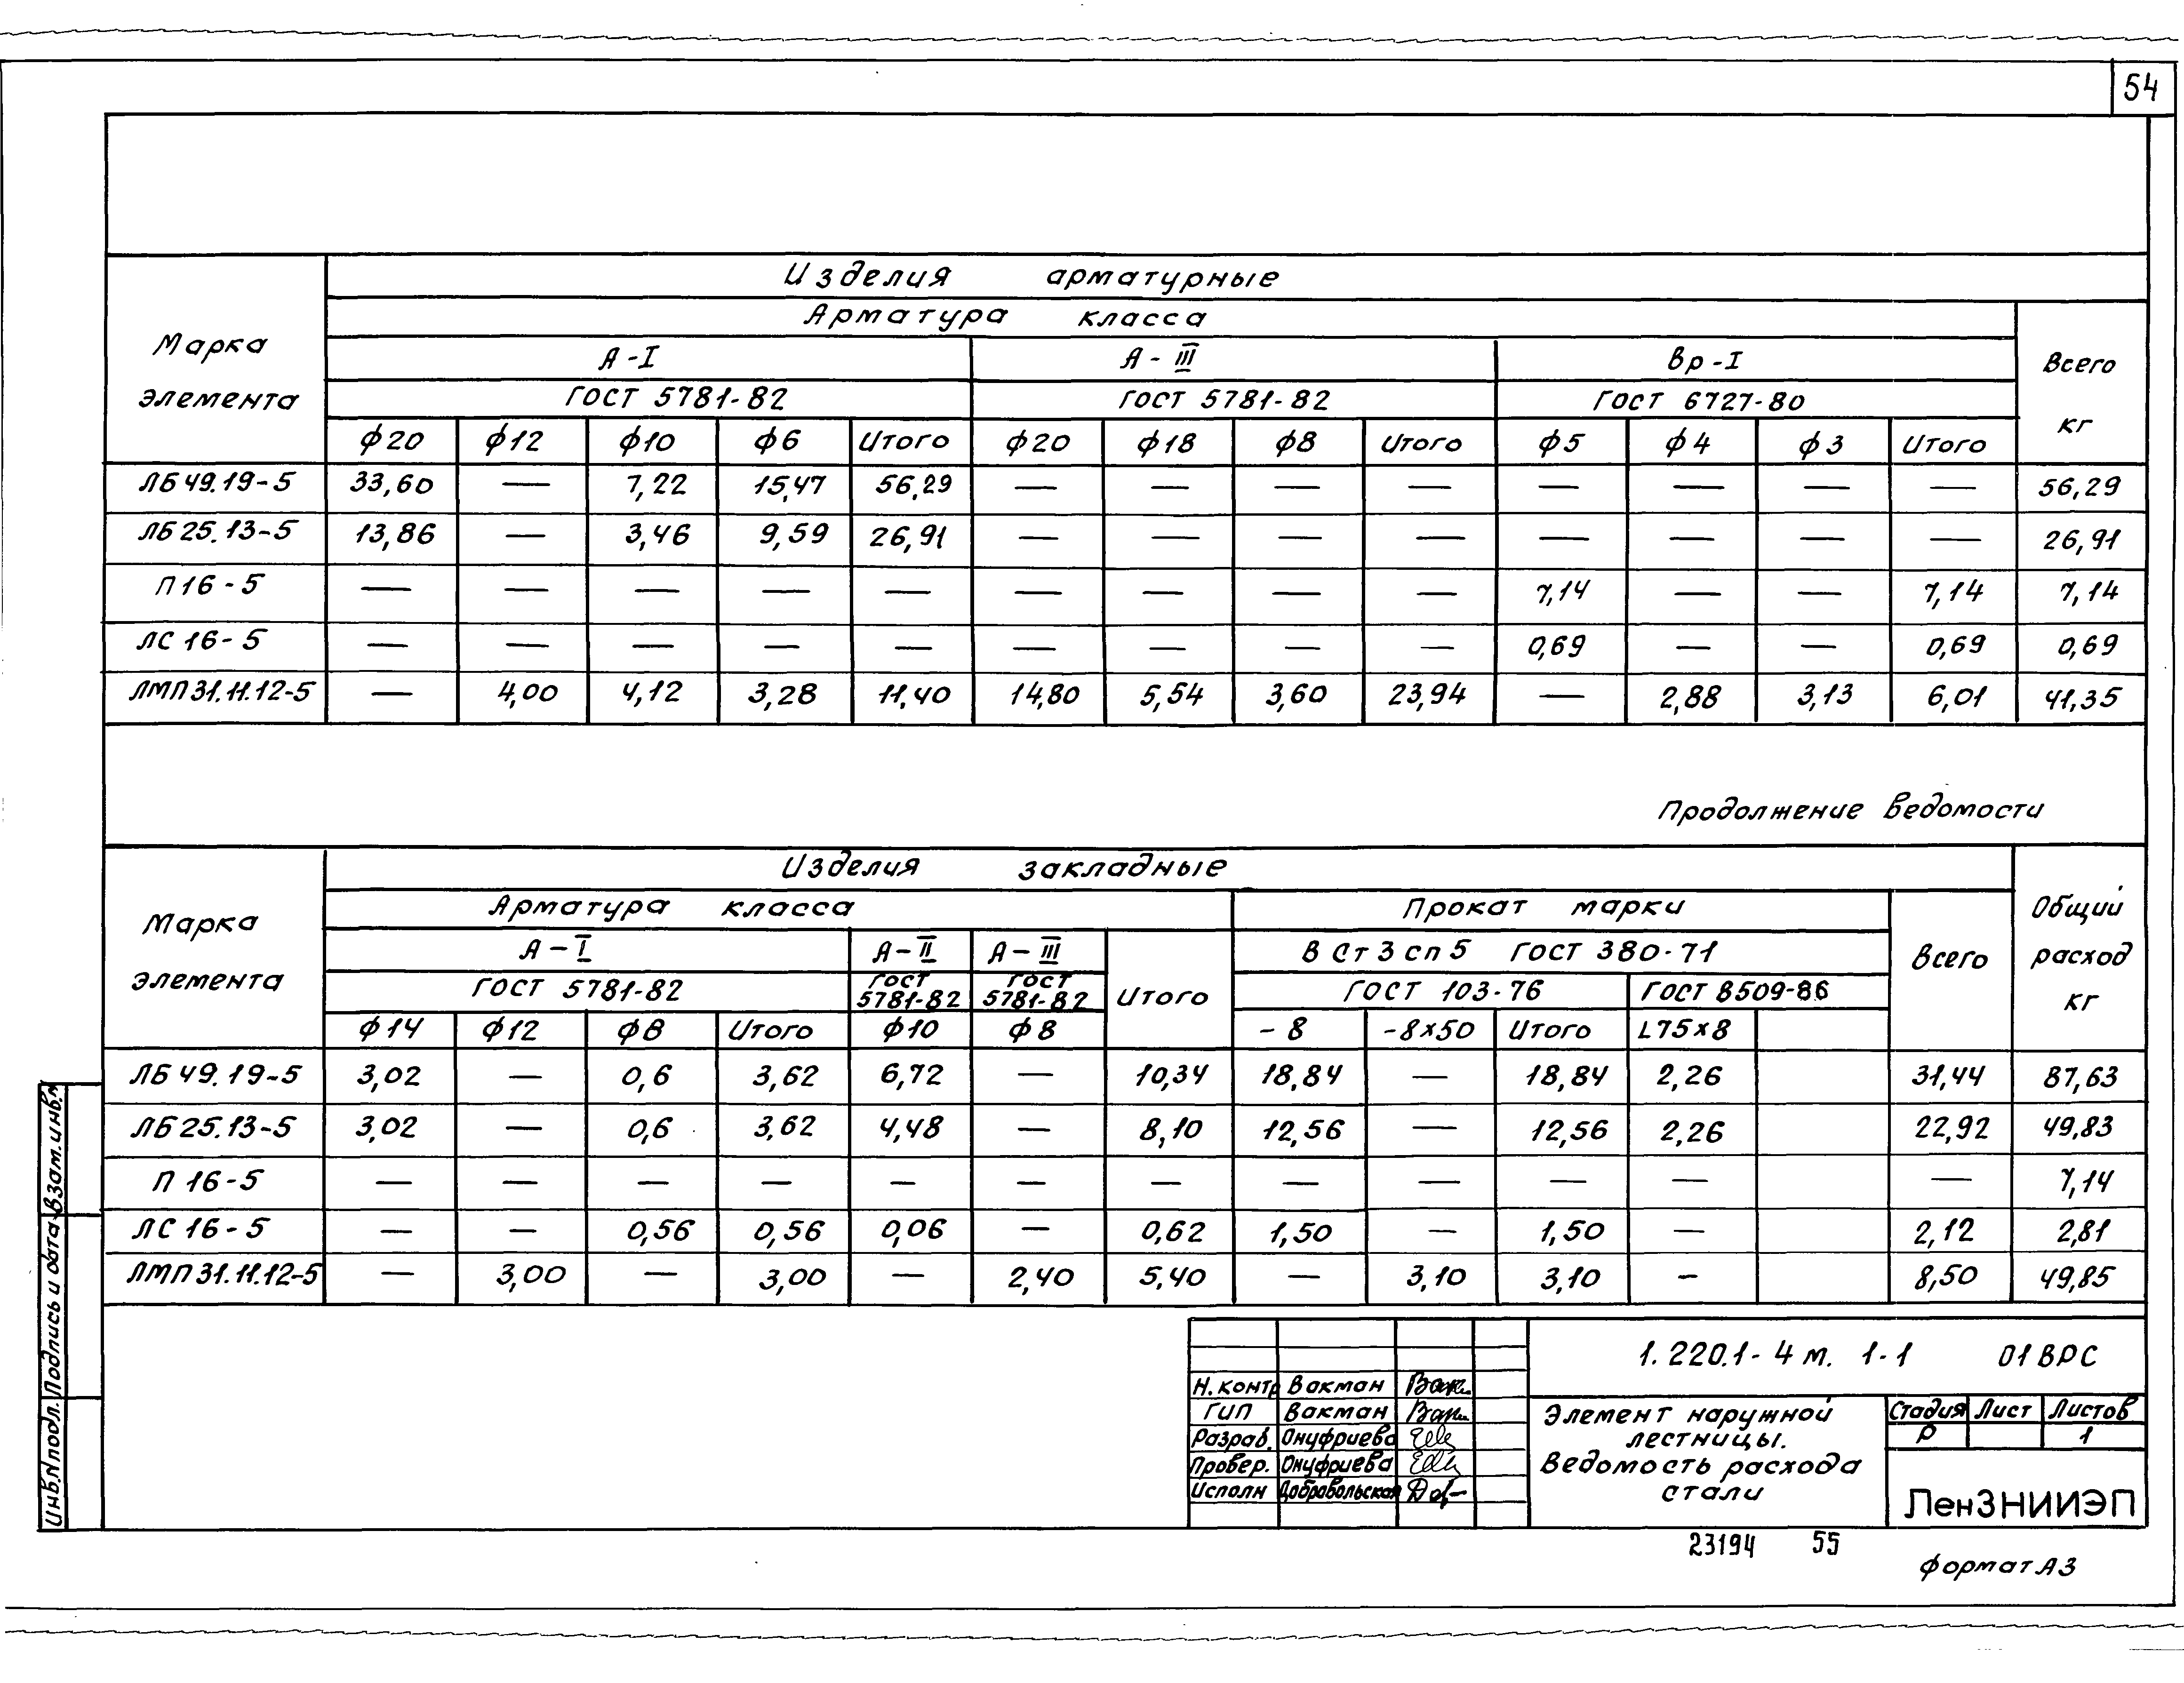 54
Изделия арматурные
Марка элемента
Арматура класса
Всего кг
А-I А-III Вр-I
ГОСТ 5781-82 ГОСТ 5781-82 ГОСТ 6727-80
ф20 ф12 ф10 ф6 Итого ф20 ф18 ф8 Итого ф5 ф4 ф3 Итого
ЛБ 49.19-5 33,60 — 7,22 15,47 56,29 — — — — — — — — 56,29
ЛБ 25.13-5 13,86 — 3,46 9,59 26,91 — — — — — — — — 26,91
П 16-5 — — — — — — — — — 7,14 — — 7,14 7,14
ЛС 16-5 — — — — — — — — — 0,69 — — 0,69 0,69
ЛМП 31.11.12-5 — 4,00 4,12 3,28 11,40 14,80 5,54 3,60 23,94 — 2,88 3,13 6,01 41,35
Продолжение ведомости
Изделия закладные
Марка элемента
Общий расход кг
Арматура класса Прокат марки
Всего
А-I А-II А-III Итого В Ст 3 сп 5 ГОСТ 380-71
ГОСТ 5781-82 ГОСТ 5781-82 ГОСТ 5781-82 ГОСТ 103-76 ГОСТ 8509-86
ф14 ф12 ф8 Итого ф10 ф8 -8 -8×50 Итого L75×8
ЛБ 49.19-5 3,02 — 0,6 3,62 6,72 — 10,34 18,84 — 18,84 2,26 31,44 87,63
ЛБ 25.13-5 3,02 — 0,6 3,62 4,48 — 8,10 12,56 — 12,56 2,26 22,92 49,83
П 16-5 — — — — — — — — — — — — 7,14
ЛС 16-5 — — 0,56 0,56 0,06 — 0,62 1,50 — 1,50 — 2,12 2,81
ЛМП 31.11.12-5 — 3,00 — 3,00 — 2,40 5,40 — 3,10 3,10 — 8,50 49,85
Взам. инв. №
Подпись и дата
Инв. № подл.
1.220.1-4м. 1-1 01ВРС
Н.контр Вакман Вак
ГИП Вакман Вак
Разраб. Онуфриева
Провер. Онуфриева
Исполн Добровольская
Элемент наружной
лестницы.
Ведомость расхода
стали
Стадия Лист Листов
Р 1
ЛенЗНИИЭП
23194 55
формат А3